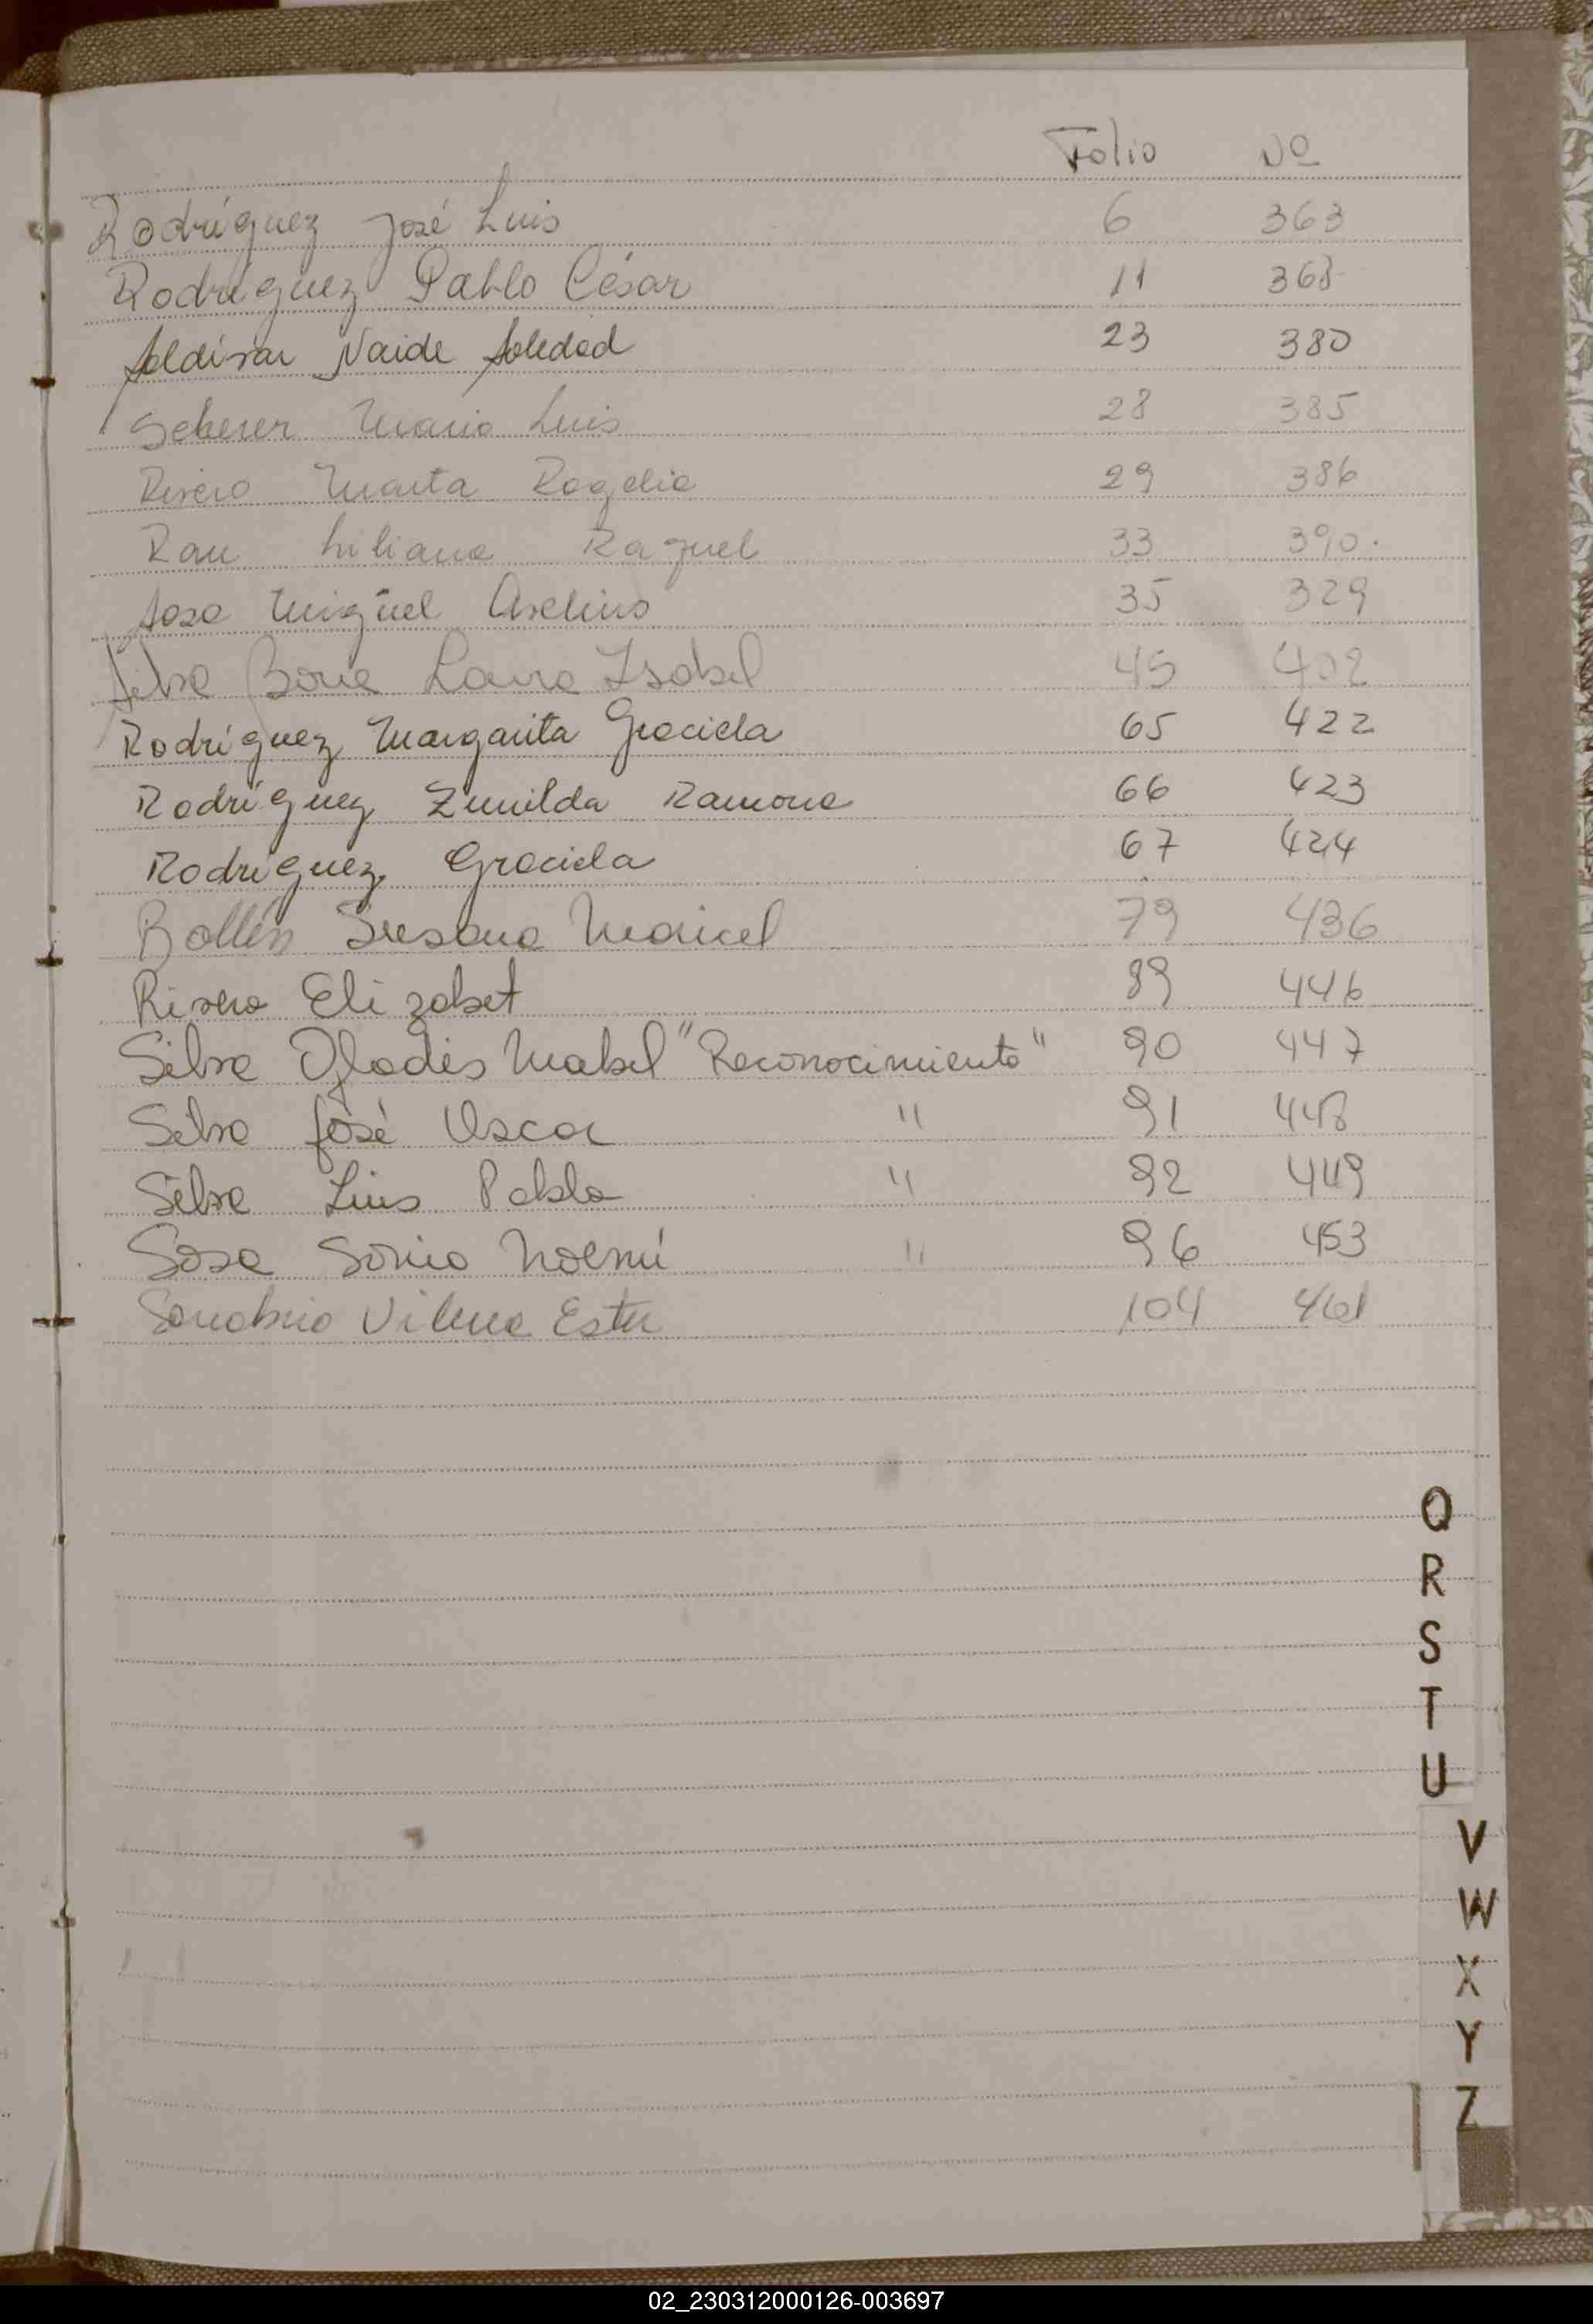 Folio Nº
Rodríguez José Luis 6 363
Rodríguez Pablo César 11 368
Saldivar Naide Soledad 23 380
Scherer Mario Luis 28 385
Rivero Marta Rogelia 29 386
Rau Liliana Raquel 33 390.
Sosa Miguel Avelino 35 329
Silva Laura Isabel 45 402
Rodríguez Margarita Graciela 65 422
Rodríguez Zunilda Ramona 66 423
Rodríguez Graciela 67 424
Susana Maricel 79 436
Rivero Elizabet 89 446
Silva Gladis Mabel "Reconocimiento" 90 447
Silva José Oscar " 91 448
Silva Luis Pablo " 92 449
Sosa Sonia Noemí " 96 453
Sanabria Vilma Ester 104 461
Q
R
S
T
U
V
W
X
Y
Z
02_230312000126-003697